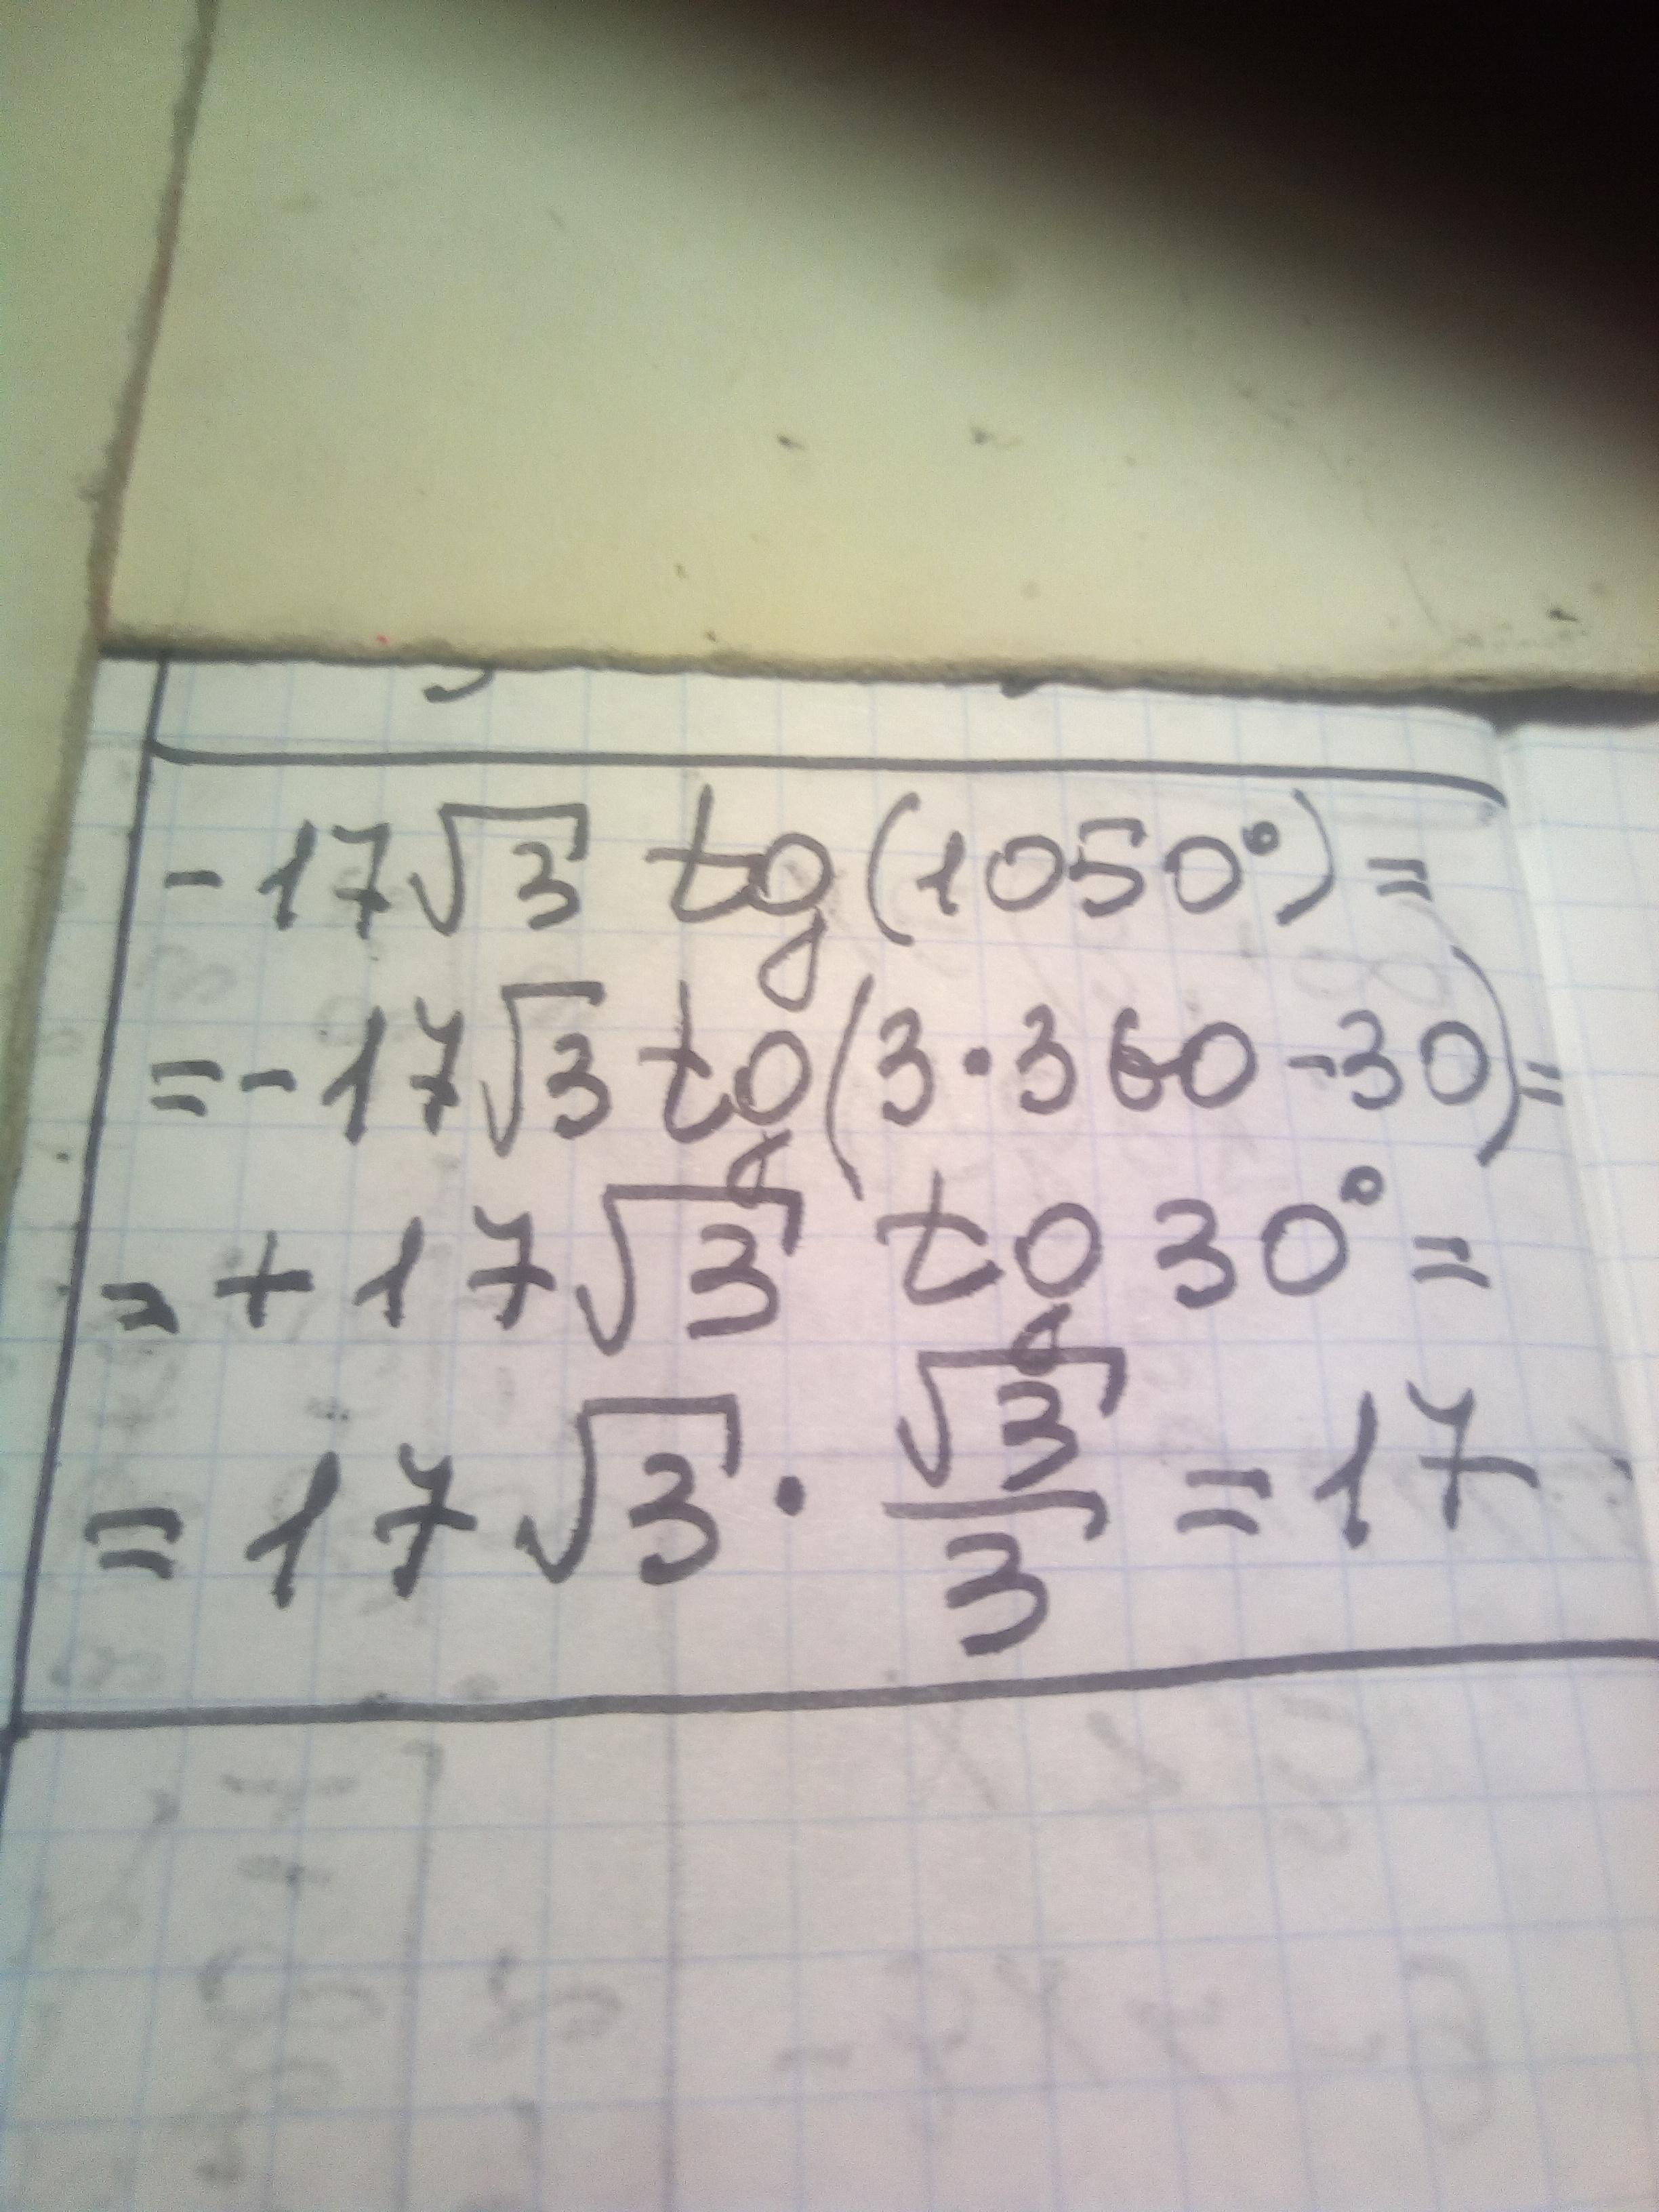 -17√3 tg(1050°)=
=-17√3 tg(3·360-30)=
=+17√3 tg 30°=
=17√3·√3/3=17